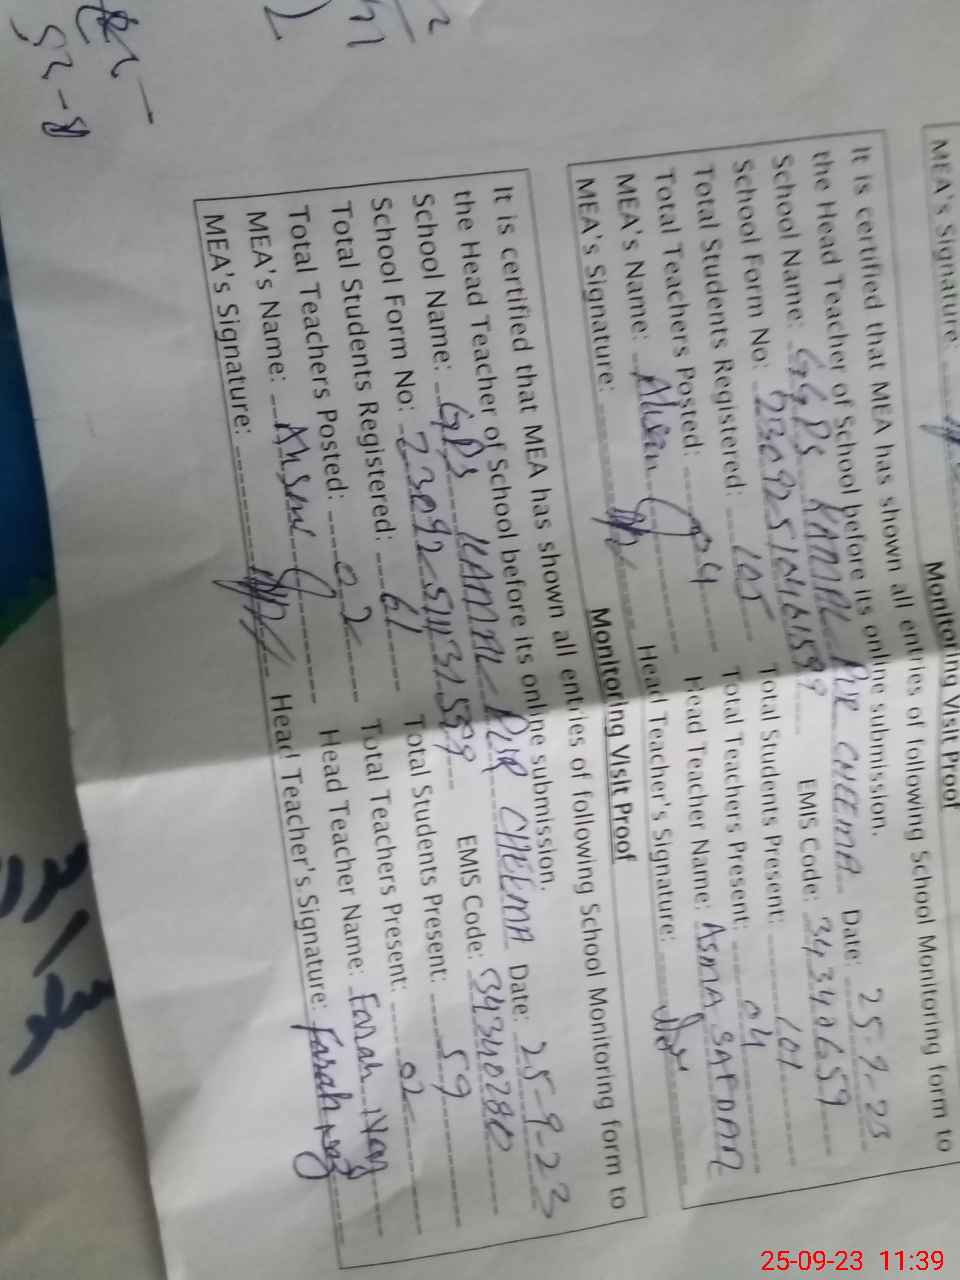 MEA's Signature:
Monitoring Visit Proof
It is certified that MEA has shown all entries of following School Monitoring form to
the Head Teacher of School before its online submission.
School Name: GGPS KAMAL PUR CHEEMA Date: 25-9-23
School Form No: EMIS Code: 34340659
Total Students Registered: 105 Total Students Present: 101
Total Teachers Posted: 04 Total Teachers Present: 04
MEA's Name: Ahsan Head Teacher Name: ASMA SAFDAR
MEA's Signature: Head Teacher's Signature:
Monitoring Visit Proof
It is certified that MEA has shown all entries of following School Monitoring form to
the Head Teacher of School before its online submission.
School Name: GPS KAMAL PUR CHEEMA Date: 25-9-23
School Form No: EMIS Code: 34340280
Total Students Registered: 61 Total Students Present: 59
Total Teachers Posted: 02 Total Teachers Present: 02
MEA's Name: Ahsan Head Teacher Name: Farah Naz
MEA's Signature: Head Teacher's Signature: Farah Naz
25-09-23 11:39